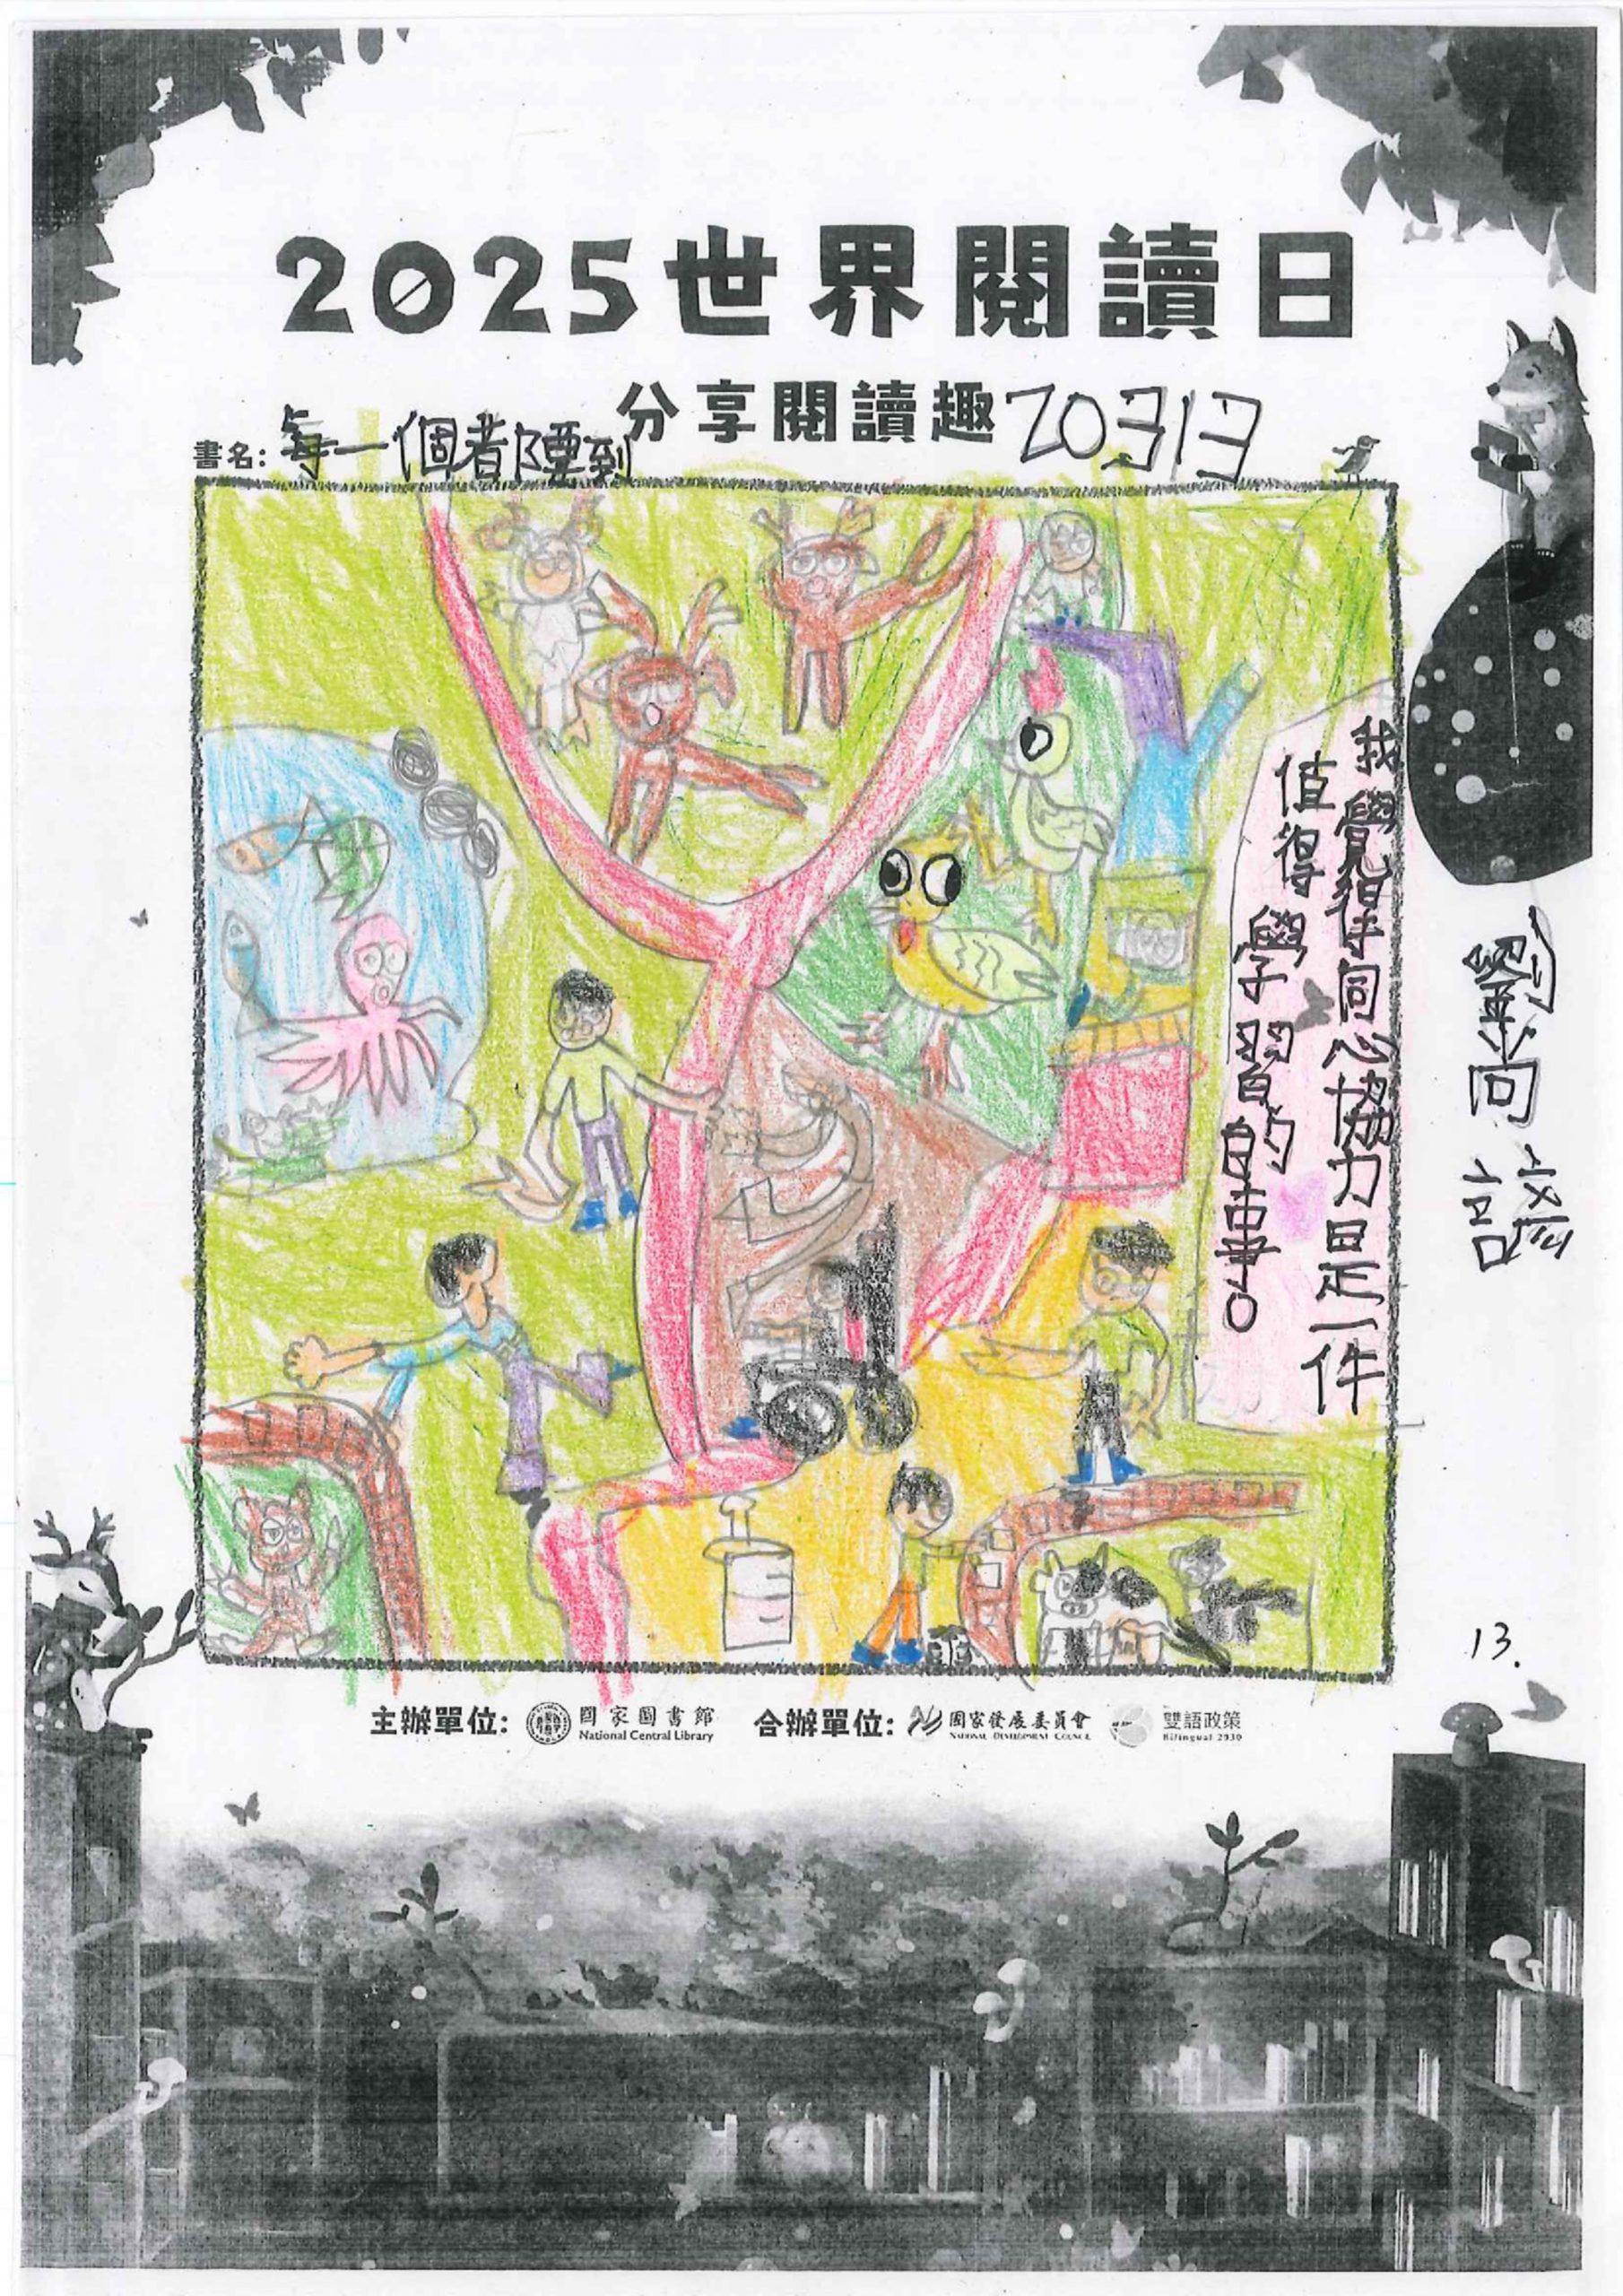 2025世界閱讀日
分享閱讀趣
20313
書名：每一個都要到
我覺得同心協力是一件
值得學習的
事。
劉尚謚
13.
主辦單位： 國家圖書館 National Central Library 合辦單位： 國家發展委員會 National Development Council 雙語政策 Bilingual 2030